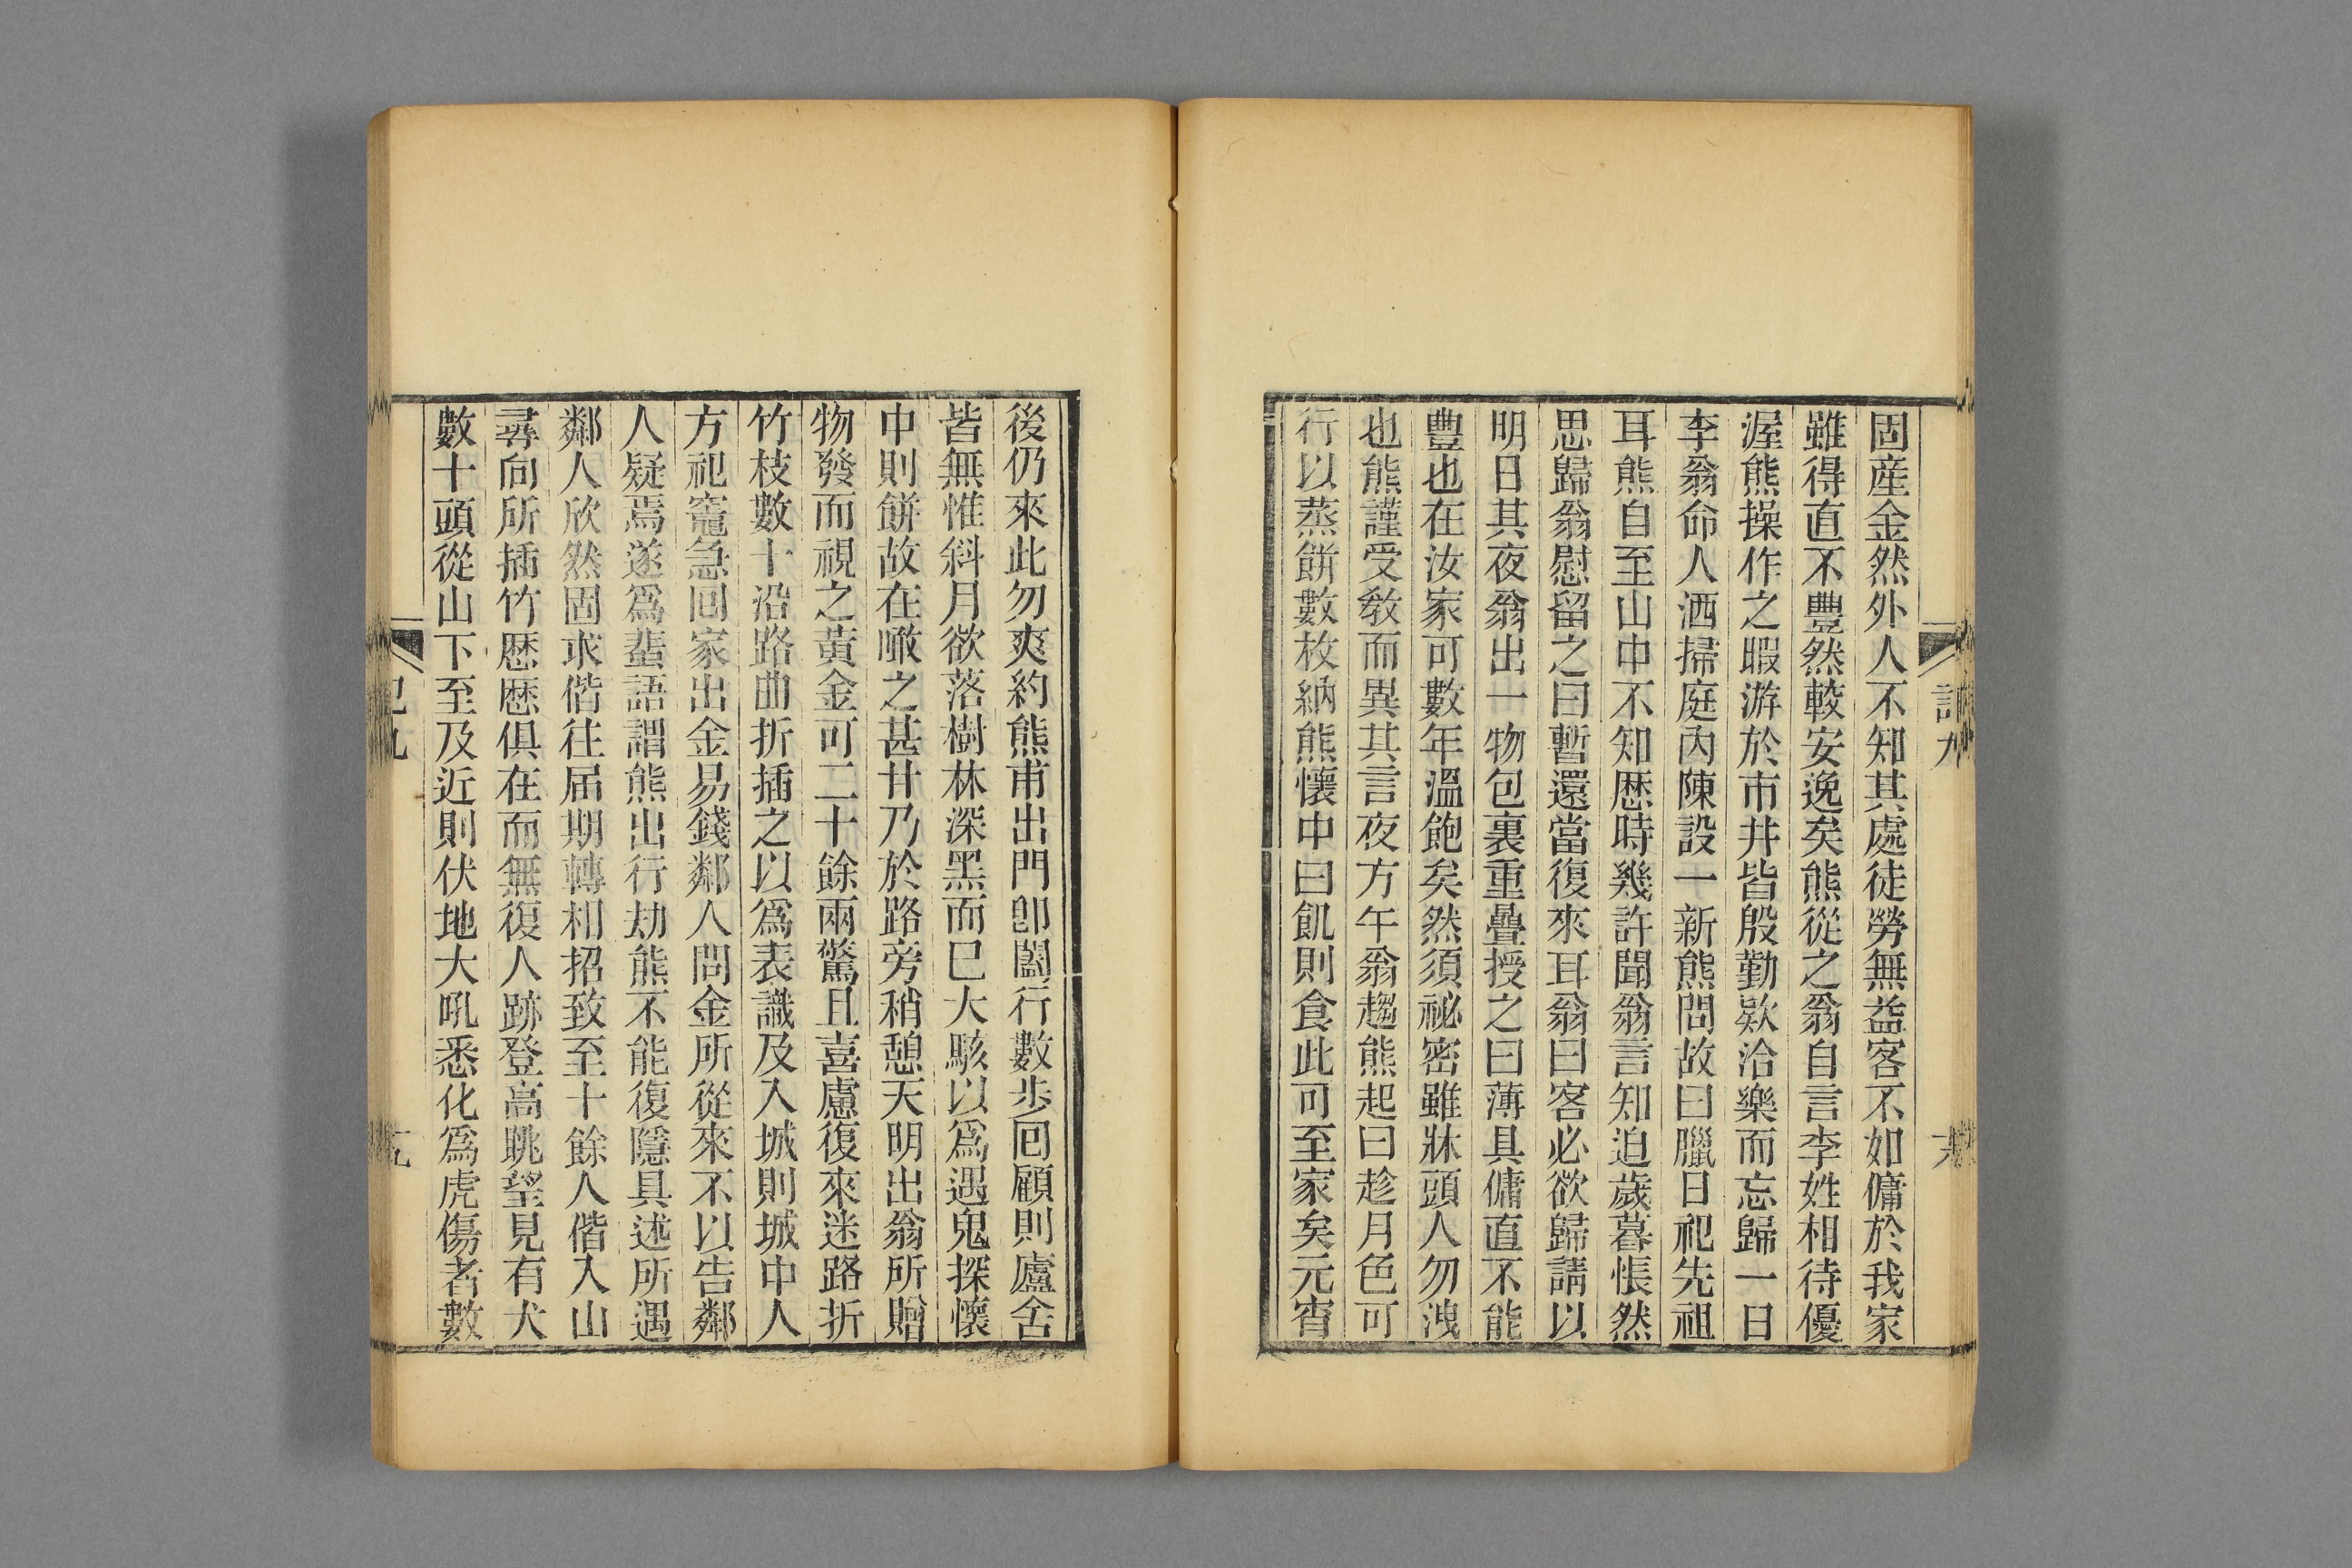 固産金然外人不知其處徒勞無益客不如傭於我家
雖得直不豐然較安逸矣熊從之翁自言李姓相待優
渥熊操作之暇游於市井皆殷勤欵洽樂而忘歸一日
李翁命人洒掃庭內陳設一新熊問故曰臘日祀先祖
耳熊自至山中不知歴時幾許聞翁言知迫歲暮悵然
思歸翁慰留之曰暫還當復來耳翁曰客必欲歸請以
明日其夜翁出一物包裹重疊授之曰薄具傭直不能
豐也在汝家可數年溫飽矣然須祕密雖牀頭人勿洩
也熊謹受敎而異其言夜方午翁趨熊起曰趁月色可
行以蒸餅數枚納熊懷中曰飢則食此可至家矣元宵
後仍來此勿爽約熊甫出門卽闔行數步回顧則廬舍
皆無惟斜月欲落樹林深黑而已大駭以爲遇鬼探懷
中則餅故在噉之甚甘乃於路旁稍憩天明出翁所贈
物發而視之黃金可二十餘兩驚且喜慮復來迷路折
竹枝數十沿路曲折插之以爲表識及入城則城中人
方祀竈急回家出金易錢鄰人問金所從來不以告鄰
人疑焉遂爲蜚語謂熊出行劫熊不能復隱具述所遇
鄰人欣然固求偕往届期轉相招致至十餘人偕入山
尋向所插竹歴歴俱在而無復人跡登高眺望見有犬
數十頭從山下至及近則伏地大吼悉化爲虎傷者數